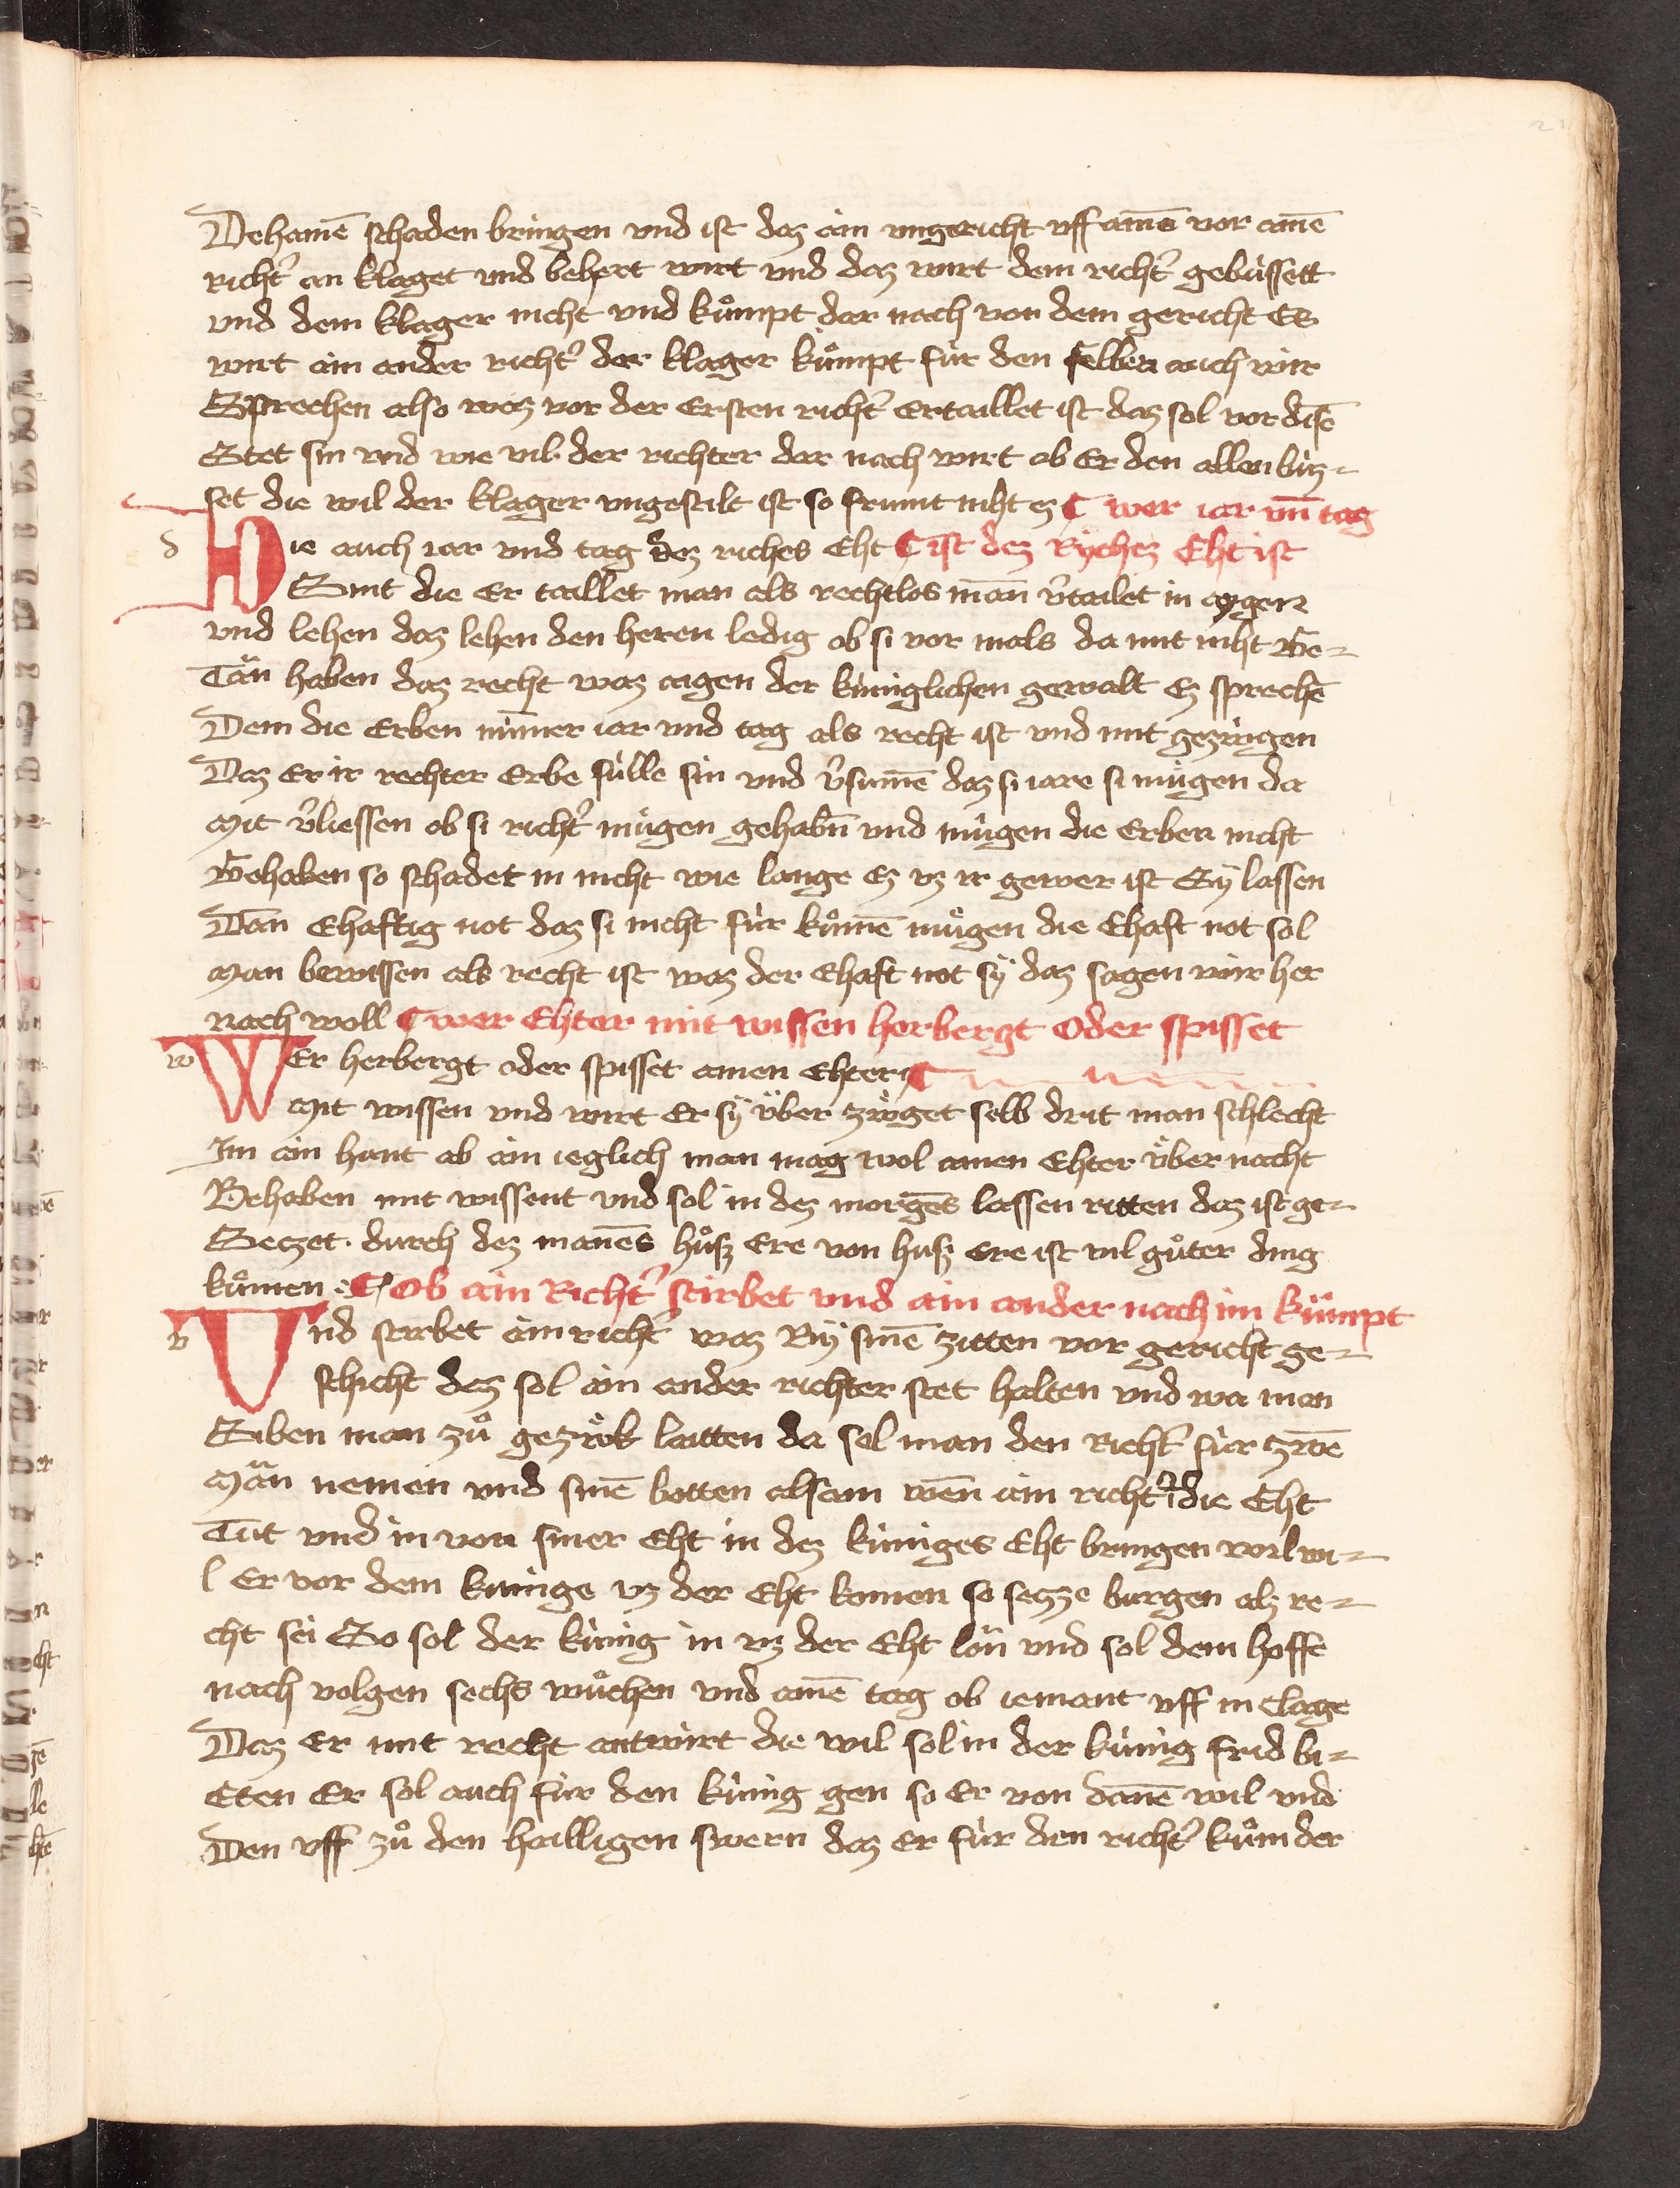 Dehainē schaden bringen vnd ist daz ain vngericht vff ainē vor ainē
richtˀ an klaget vnd behert wirt vnd daz wirt dem richtˀ gebùssett
vnd dem klager nicht vnd kůmpt dar nach von dem gericht Es
wirt ain ander richtˀ der klager kůmpt fùr den selben auch wir
Sprechen also waz vor der Ersten richtˀ Ertaillet ist daz sol vor disē
Stet sin vnd wie vil der richter dar nach wirt ob Er den allen bùz-
set die wil der klager vngestilt ist so frumt niht ez ¶ wer iar vn̄ tag
d Die auch iar vnd tag dez riches Eht ¶ ist dez Rÿchez Eht ist
Sint die Er taillet man als rechtlos man̄ vˀtailet in aygen
vnd lehen daz lehen den heren ledig ob si vor mals da mit niht Ge-
Tän haben daz recht waz aigen der kùniglichen gewalt Ez sprechē
Dem die Erben nim̄er iar vnd tag als recht ist vnd mit gezùigen
Daz Er ir rechter Erbe sùlle sin vnd vˀsumē daz si iare si mùgen da
Mit vˀliessen ob si richtˀ mùgen gehabn̄ vnd mùgen die Erben nicht
Gehaben so schadet in nicht wie lange Ez vz ir gewer ist Eÿ lassen
Dan̄ Ehaftig not daz si nicht fùr kůmē můgen die Ehaft not sol
Man bewissen als recht ist waz der Ehaft not sÿ daz sagen wir her
nach woll ¶ wer Ehter mit wissen herbergt Oder spisset
w WEr herbergt oder spisset ainen Ehter ¶
Mit wissen vnd wirt Er sÿ ùber zùget selb drit man schlecht
Im ain hant ab ain ieglich man mag wol ainen Ehter ùber nacht
Behaben mit wissent vnd sol in dez morgēs lassen ritten daz ist ge-
Seczet durch dez manēs hůsz Ere von husz ere ist vil gůter ding
kůmen ¶ Ob ain Richtˀ stirbet vnd ain ander nach im kůmpt
v Vnd stirbet ain richtˀ waz Bÿ sinē zitten vor gericht ge-
schicht daz sol ain ander richter stet halten vnd wa man
Siben man zů gezùk laitten da sol man den Richtˀ fùr zwē
Män nemen vnd sinē botten alsam wēn ain richtˀ in die Eht
Tůt vnd in von siner Eht in dez kùniges Eht bringen vorl wi-
l Er vor dem kuinge vz der Eht komen so secze burgen alz re-
cht sei So sol der kùnig in vz der Eht lön vnd sol dem hoffe
nach volgen sechs wůchen vnd ainē tag ob iemant vff in clage
Daz Er mit recht antwirt die wil sol in der kùnig frid bi-
Eten Er sol auch fùr den kùnig gen so Er von danē wil vnd
Den vff zů den hailligen swern daz er fùr den richtˀ kům der